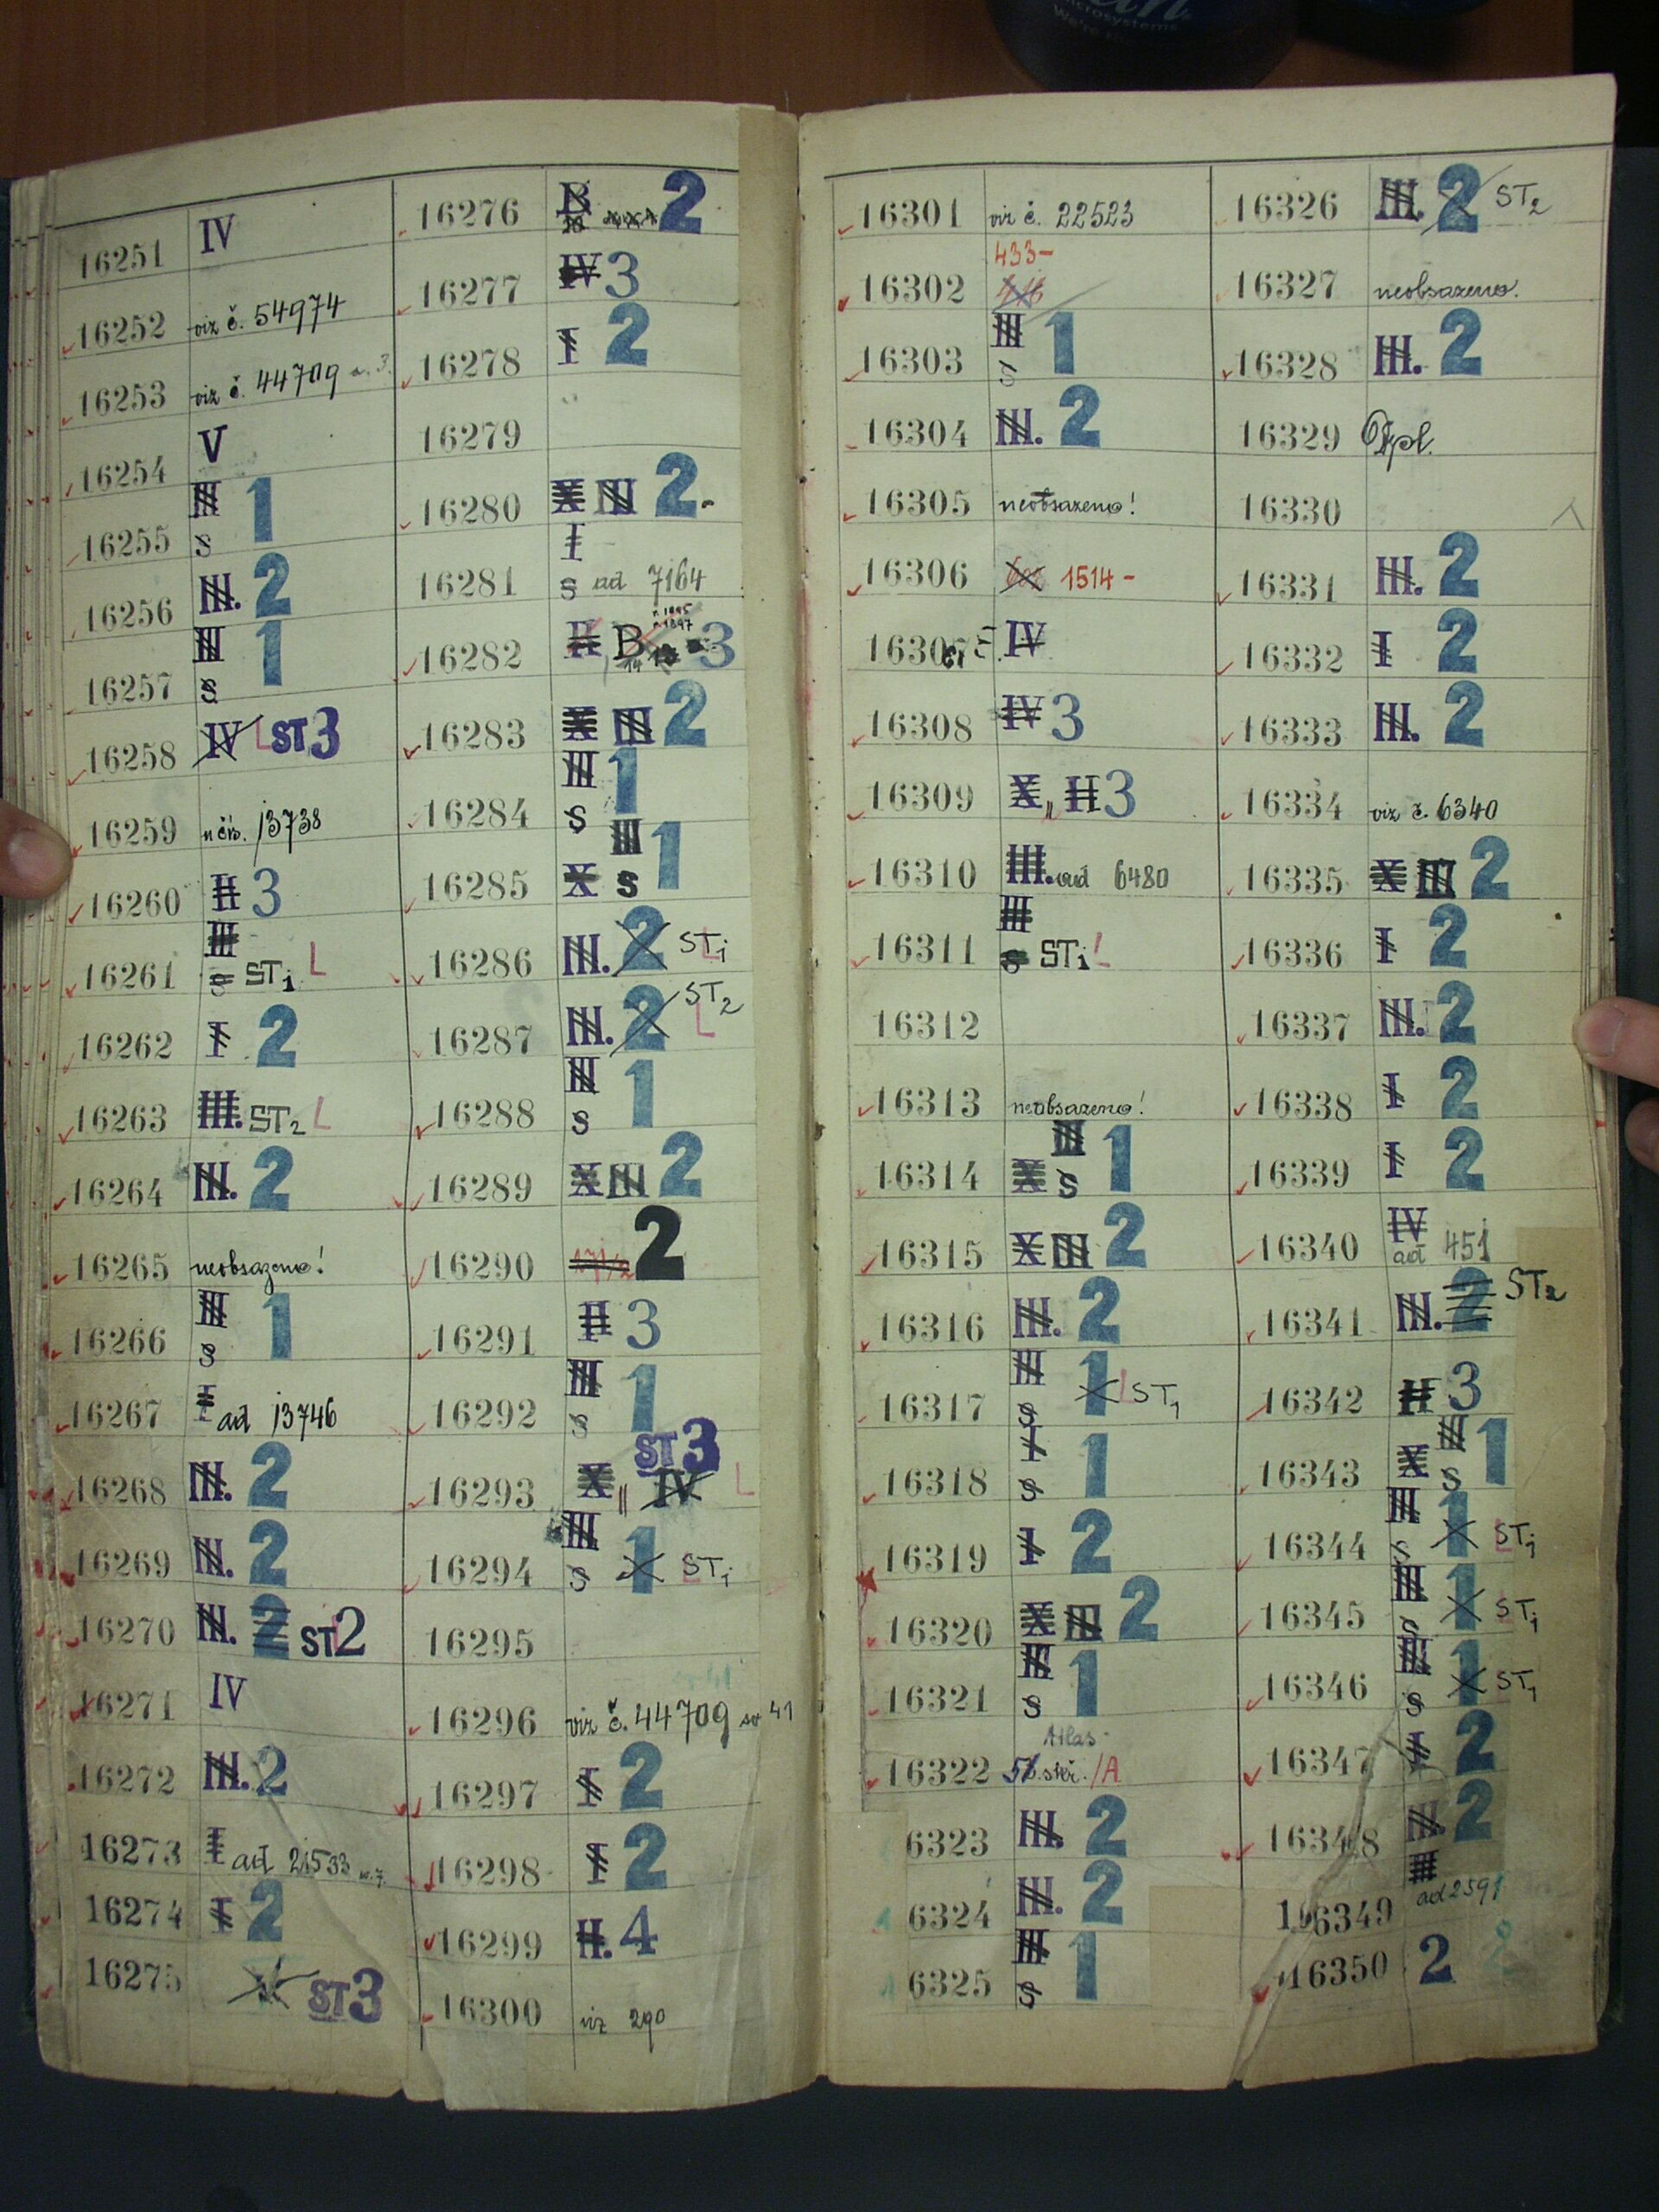 Microsystems
16251 IV
16252 viz č. 54974
16253 viz č. 44709
16254 V
16255 III S 1
16256 III. 2
16257 III S 1
16258 IV L ST3
16259 13738
16260 II 3
16261 III S ST1 L
16262 I 2
16263 III. ST2 L
16264 III. 2
16265 neobsazeno!
16266 III S 1
16267 I ad 13746
16268 III. 2
16269 III. 2
16270 III. 2 ST2
16271 IV
16272 III. 2
16273 I ad 21533
16274 I 2
16275 ST3
16276 B 2
16277 IV 3
16278 I 2
16279
16280 X III 2
16281 I S ad 7164
16282 II B 3
16283 X III 2
16284 III S 1
16285 X III S 1
16286 III. 2 ST1 L
16287 III. 2 ST2 L
16288 III S 1
16289 X III 2
16290 2
16291 II 3
16292 III S 1
16293 X IV ST3 L
16294 III S 1 ST1 L
16295
16296 viz č. 44709 41
16297 I 2
16298 I 2
16299 II. 4
16300 viz 290
16301 viz č. 22523
16302 433-
16303 III S 1
16304 III. 2
16305 neobsazeno!
16306 1514-
16307 IV
16308 IV 3
16309 X II 3
16310 III. ad 6480
16311 III S ST1 L
16312
16313 neobsazeno!
16314 X III S 1
16315 X III 2
16316 III. 2
16317 III S 1 L ST1
16318 I S 1
16319 I 2
16320 X III 2
16321 III S 1
16322 Atlas /A
6323 III. 2
6324 III. 2
6325 III S 1
16326 III. 2 ST2
16327 neobsazeno.
16328 III. 2
16329
16330
16331 III. 2
16332 I 2
16333 III. 2
16334 viz č. 6340
16335 X III 2
16336 I 2
16337 III. 2
16338 I 2
16339 I 2
16340 IV ad 451
16341 III. 2 ST2
16342 II 3
16343 X III S 1
16344 III S 1 ST1 L
16345 III S 1 ST1 L
16346 III S 1 ST1
16347 I 2
16348 III. 2
16349 III ad 2591
16350 2 2